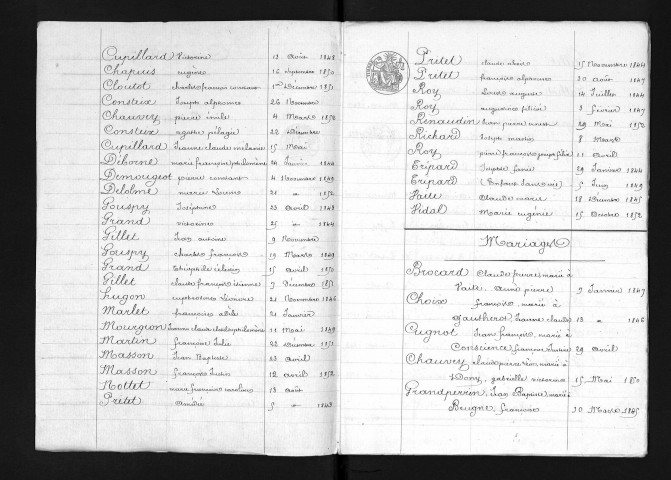 Cupillard Victorine 13 Août 1848
Chapuis eugène 16 Septembre 1850
Cloutot charles françois constant 1er Décembre 1851
Consteix Joseph alphonse 26 Novembre
Chauvey pierre émile 4 Mars 1850
Consteix agathe pélagie 22 Décembre
Cupillard Jeanne claude mélanie 15 Mai
Déborne marie françoise philomène 24 Janvier 1846
Demougeot pierre constant 4 Novembre 1849
Delolme marie Louise 21 " 1852
Gouspy Joséphine 23 Avril 1848
Grand victorine 25 " 1844
Gillet Jean antoine 9 Novembre
Gouspy charles françois 19 Mars 1849
Grand théophile célestin 15 Avril 1850
Gillet claude françois étienne 9 Décembre 1851
Lugon euphrosine Léonore 21 Novembre 1846
Marlet françoise adèle 21 Janvier
Mourgeon Jeanne claude philomène 11 Mai 1849
Martin françoise Julie 22 Décembre 1851
Masson Jean Baptiste 23 Avril
Masson françois Justin 12 avril 1852
Nottet marie françoise caroline 13 août
Prétet Amédée 5 " 1843
Prétet claude alexis 15 Novembre 1844
Prétet françois alphonse 30 Août 1847
Roy Louis auguste 14 Juillet 1844
Roy augustine félicie 3 février 1847
Renaudin Jean pierre ernest 29 Mai 1852
Richard Joseph martin 8 Mars
Roy pierre françois joseph félix 11 Avril
Tripard 29 Janvier 1844
Tripard (Enfant Sans vie) 5 Juin 1849
Vaite Claude marie 18 Décembre 1845
Vidal Marie eugénie 15 Octobre 1852
Mariages
Brocard Claude pierre, marié à
Vaite, pierre 9 Janvier 1847
Choix françois, marié à
Gautherot, Jeanne claude 13 " 1846
Cugnot Jean françois, marié à
Conscience, françoise Justine 29 avril
Chauvey claude pierre Léon, marié à
Dony, gabrielle 15 Mai 1850
Grandperrin, Jean Baptiste, marié à
Beugne, françoise 20 Mars 1845